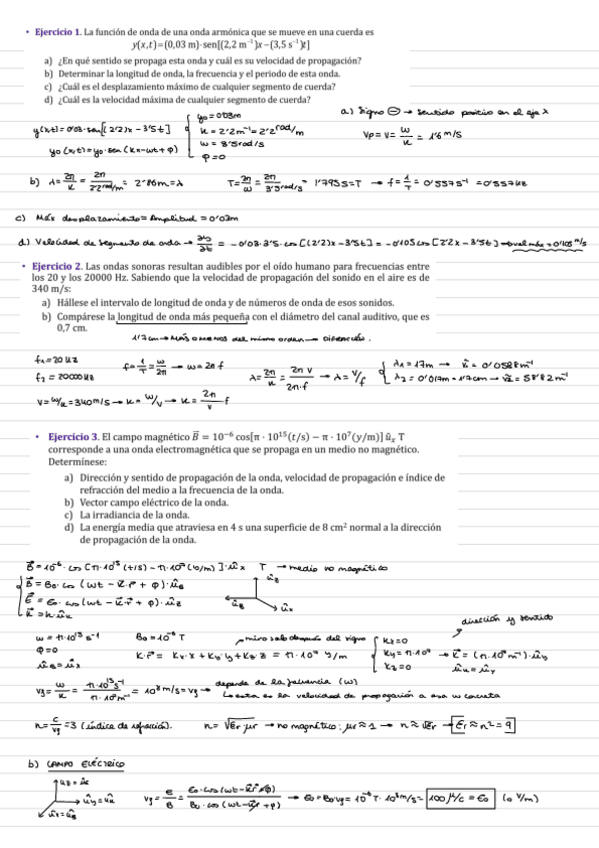 • Ejercicio 1. La función de onda de una onda armónica que se mueve en una cuerda es
y(x,t)=(0,03 m)·sen[(2,2 m⁻¹)x−(3,5 s⁻¹)t]
a) ¿En qué sentido se propaga esta onda y cuál es su velocidad de propagación?
b) Determinar la longitud de onda, la frecuencia y el periodo de esta onda.
c) ¿Cuál es el desplazamiento máximo de cualquier segmento de cuerda?
d) ¿Cuál es la velocidad máxima de cualquier segmento de cuerda?
a.) Signo ⊖ → sentido positivo en el eje x
y(x,t)=0'03·sen[(2'2)x−3'5t]
yo(x,t)=yo·sen(kx−wt+φ)
yo=0'03m
k=2'2m⁻¹=2'2rad/m
w=3'5rad/s
φ=0
Vp=V=w/k=1'6m/s
b) λ=2π/k=2π/2'2rad/m=2'86m=λ T=2π/w=2π/3'5rad/s=1'795s=T → f=1/T=0'557s⁻¹=0'557Hz
c) Máx desplazamiento=Amplitud=0'03m
d.) Velocidad de segmento de onda → ∂y/∂t=−0'03·3'5·cos[(2'2)x−3'5t]=−0'105cos[2'2x−3'5t] → vel máx=0'105 m/s
• Ejercicio 2. Las ondas sonoras resultan audibles por el oído humano para frecuencias entre
los 20 y los 20000 Hz. Sabiendo que la velocidad de propagación del sonido en el aire es de
340 m/s:
a) Hállese el intervalo de longitud de onda y de números de onda de esos sonidos.
b) Compárese la longitud de onda más pequeña con el diámetro del canal auditivo, que es
0,7 cm.
1'7cm → Más o menos del mismo orden → Difracción.
f₁=20Hz
f₂=20000Hz
f=1/T=w/2π → w=2πf
λ=2π/k=2πv/2π·f → λ=v/f
λ₁=17m → k=0'0588m⁻¹
λ₂=0'017m=1'7cm → k=58'82m⁻¹
V=w/k=340m/s → k=w/v → k=2π/v f
• Ejercicio 3. El campo magnético B⃗ = 10⁻⁶ cos[π · 10¹⁵(t/s) − π · 10⁷(y/m)] ûₓ T
corresponde a una onda electromagnética que se propaga en un medio no magnético.
Determínese:
a) Dirección y sentido de propagación de la onda, velocidad de propagación e índice de
refracción del medio a la frecuencia de la onda.
b) Vector campo eléctrico de la onda.
c) La irradiancia de la onda.
d) La energía media que atraviesa en 4 s una superficie de 8 cm² normal a la dirección
de propagación de la onda.
B⃗=10⁻⁶·cos[π·10¹⁵(t/s)−π·10⁷(y/m)]·ûx T → medio no magnético
B⃗=Bo·cos(wt−k⃗·r⃗+φ)·ûB
E⃗=Eo·cos(wt−k⃗·r⃗+φ)·ûE
k⃗=k·ûk
dirección y sentido
w=π·10¹⁵s⁻¹
φ=0
ûB=ûx
Bo=10⁻⁶T
miro solo después del signo
k⃗·r⃗=kx·x+ky·y+kz·z=π·10⁷y/m
kx=0
ky=π·10⁷ → k⃗=(π·10⁷m⁻¹)·ûy
kz=0 ûk=ûy
vg=w/k=π·10¹⁵s⁻¹/π·10⁷m⁻¹=10⁸m/s=vg → depende de la frecuencia (w)
Lo esta es la velocidad de propagación a esa w concreta
n=c/vg=3 (índice de refracción). n=√εr·μr → no magnético: μr≈1 → n≈√εr → εr≈n²=9
b) CAMPO ELÉCTRICO
ûy=ûk
ûx=ûB
vg=E/B=Eo·cos(wt−k⃗r⃗+φ)/Bo·cos(wt−k⃗r⃗+φ) → Eo=Bo·vg=10⁻⁶T·10⁸m/s=100 N/C=Eo (o V/m)